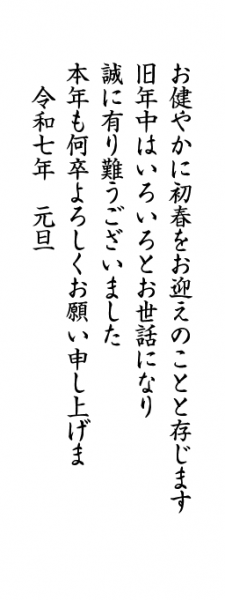 お健やかに初春をお迎えのことと存じます
旧年中はいろいろとお世話になり
誠に有り難うございました
本年も何卒よろしくお願い申し上げま
令和七年　元旦